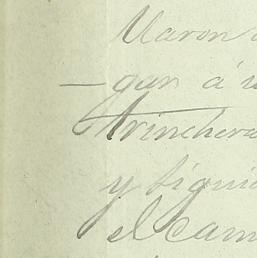 llaron
— gar á
trinchera
y siguie
el cam